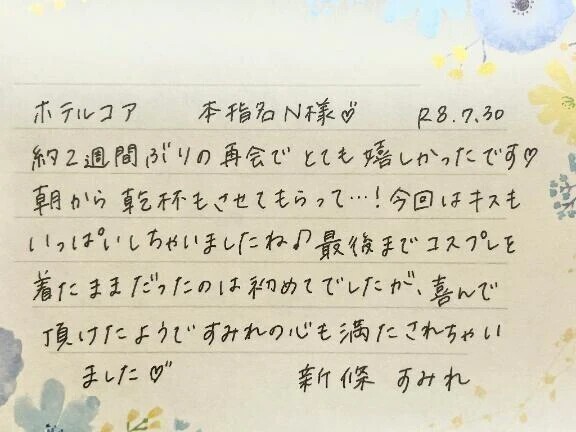 ホテルコア 本指名N様♡ R8.7.30
約2週間ぶりの再会でとても嬉しかったです♡
朝から乾杯もさせてもらって…!今回はキスも
いっぱいしちゃいましたね♪最後までコスプレを
着たままだったのは初めてでしたが、喜んで
頂けたようですみれの心も満たされちゃい
ました♡
新條 すみれ